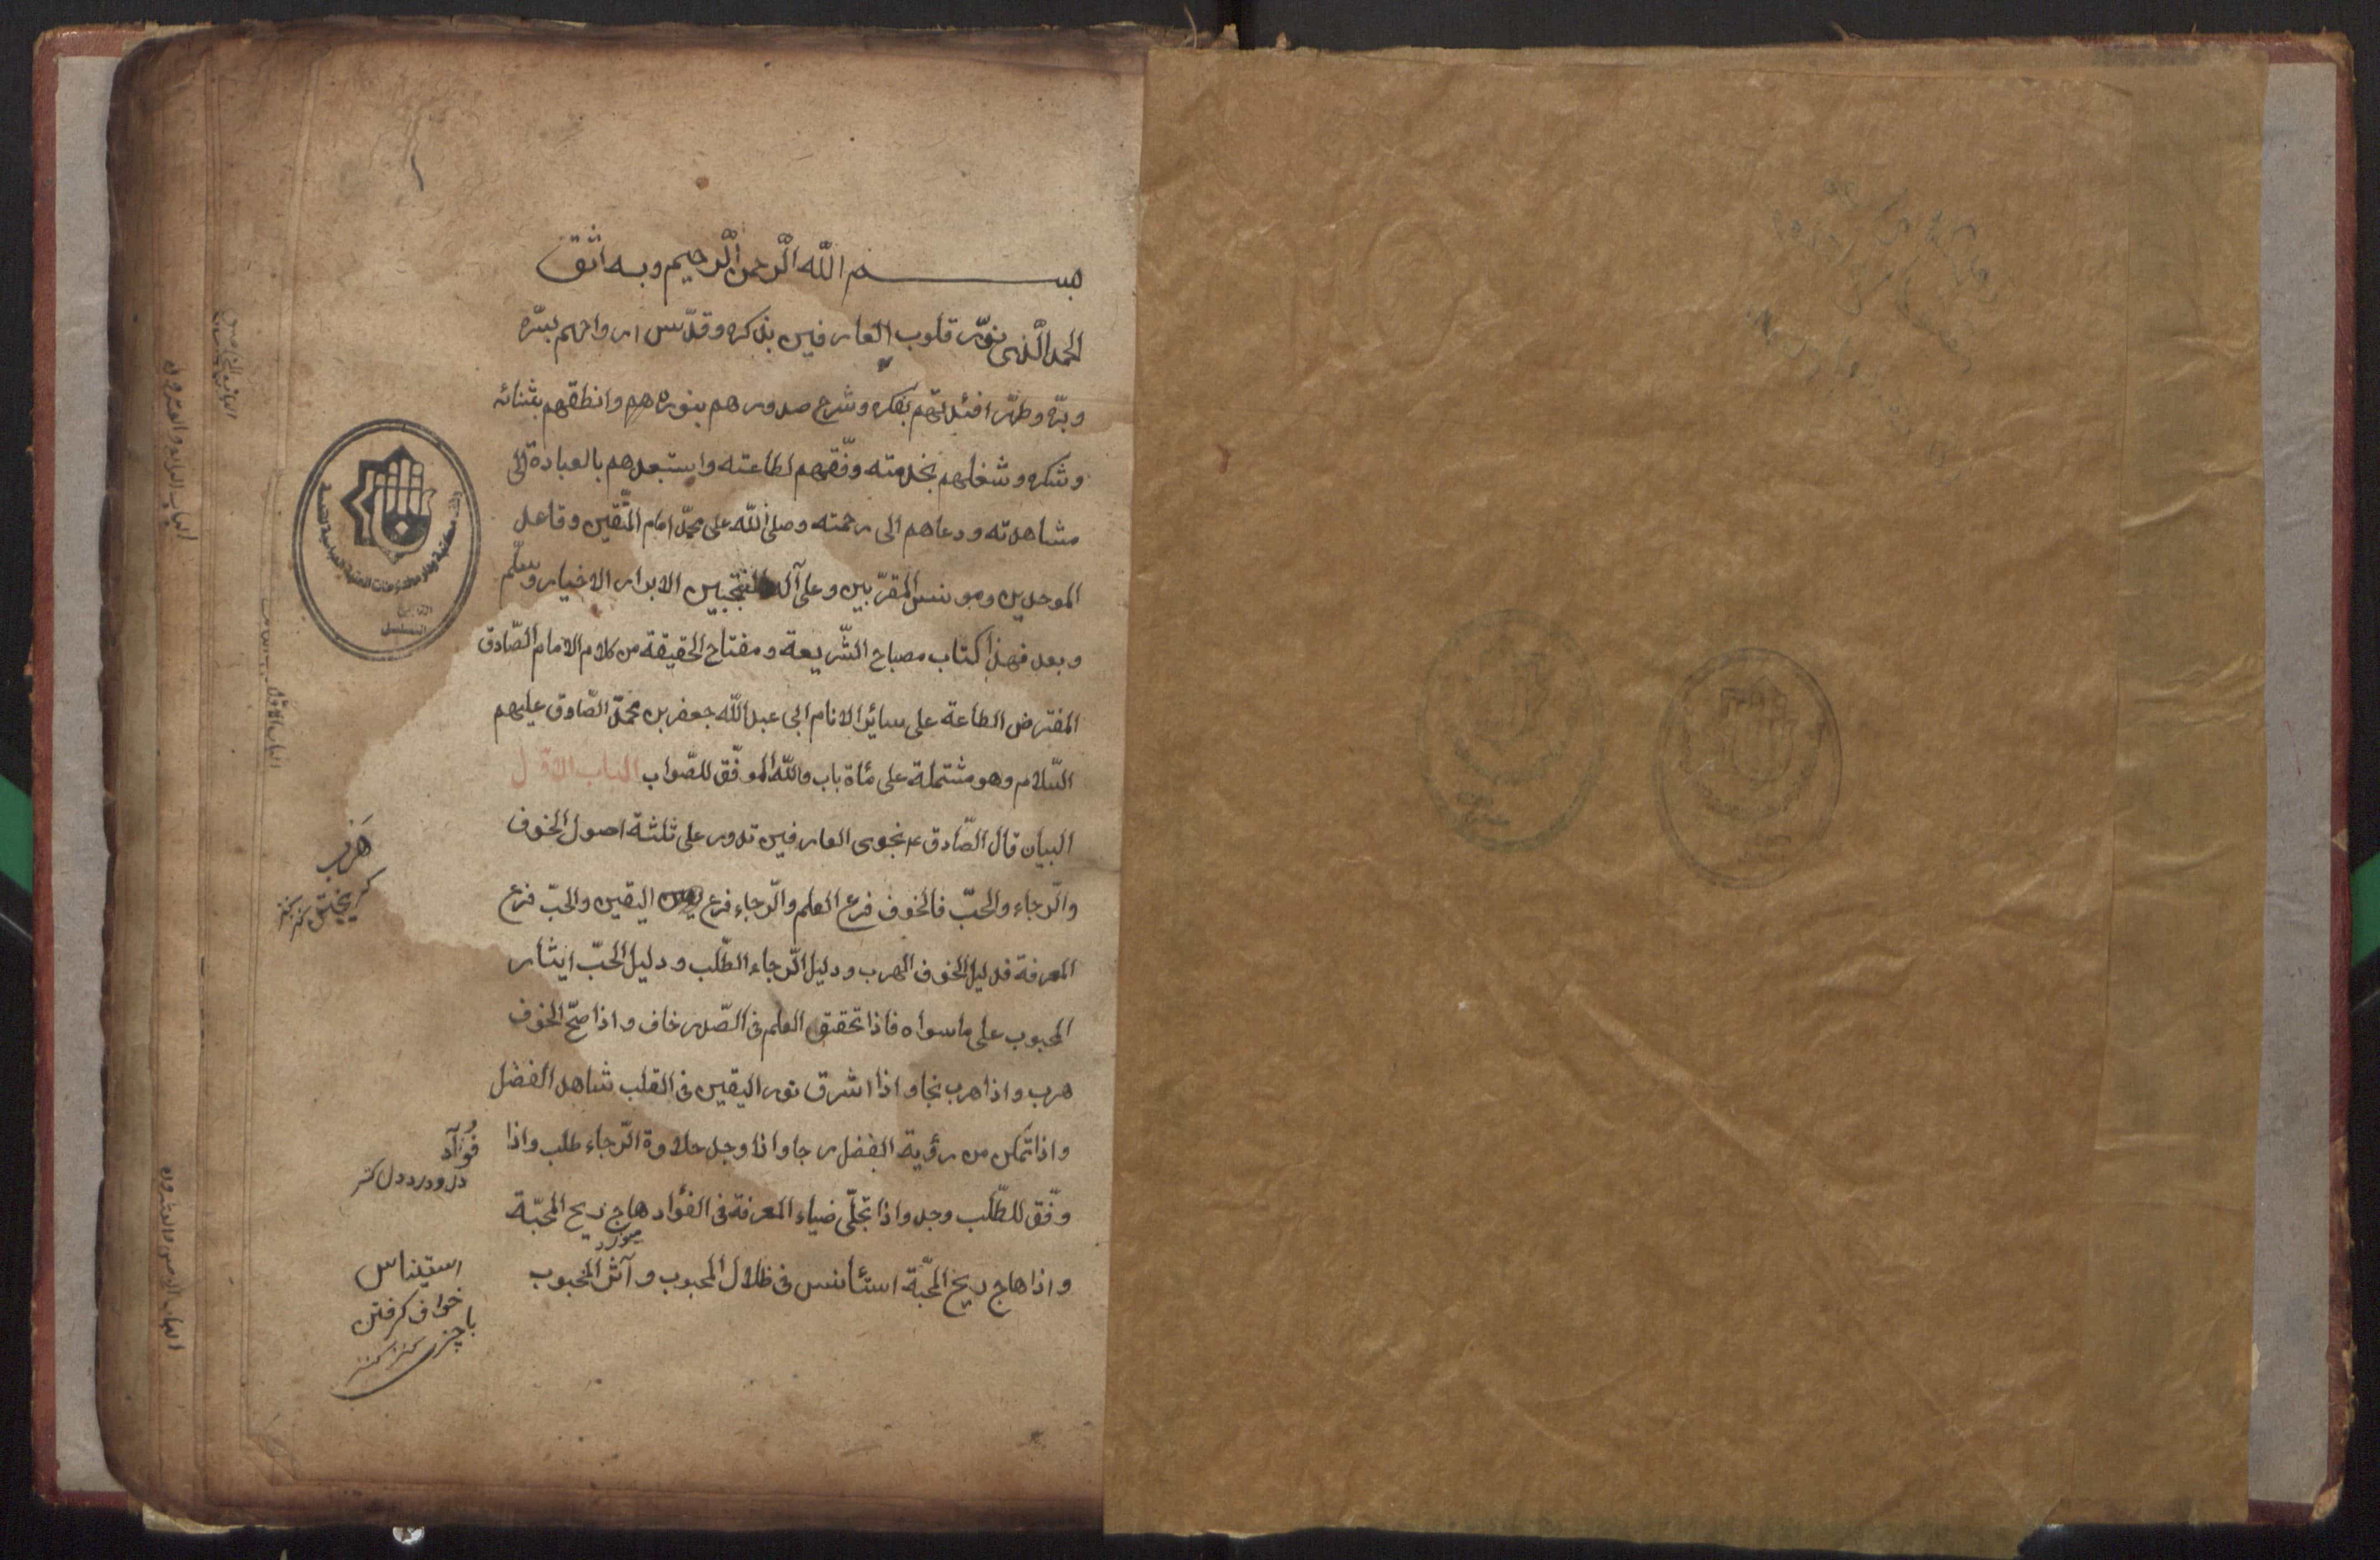 ١
بسم الله الرّحمن الرّحيم وبه اثق
الحمد الّذى نوّر قلوب العارفين بذكره وقدّس ارواحهم بسرّه
وبرّه وطهّر افئدتهم بفكره وشرح صدورهم بنوره وانطقهم بثنائه
وشكره وشغلهم بخدمته ووفّقهم لطاعته واستعبدهم بالعبادة الى
مشاهدته ودعاهم الى رحمته وصلى الله على محمّد امام المتّقين وقاعد
الموحدين ومونس المقرّبين وعلى آله المنتجبين الابرار الاخيار وسلّم
وبعد فهذا كتاب مصباح الشّريعة ومفتاح الحقيقة من كلام الامام الصّادق
المفترض الطاعة على سائر الانام ابى عبد الله جعفر بن محمّد الصّادق عليهم
السّلام وهو مشتملة على مأة باب والله الموفّق للصّواب الباب الاوّل
البيان قال الصّادق ع نجوى العارفين تدور على ثلثة اصول الخوف
والرّجاء والحبّ فالخوف فرع العلم والرّجاء فرع اليقين والحبّ فرع
المعرفة فدليل الخوف الهرب ودليل الرّجاء الطّلب ودليل الحبّ ايثار
المحبوب على ما سواه فاذا تحقق العلم فى الصّدر خاف واذا صحّ الخوف
هرب واذا هرب نجا واذا اشرق نور اليقين فى القلب شاهد الفضل
واذا تمكن من رؤية الفضل رجا واذا وجد حلاوة الرّجاء طلب واذا
وفّق للطّلب وجد واذا تجلّى ضياء المعرفة فى الفؤاد هاج ريح المحبّة
واذا هاج ريح المحبّة استأنس فى ظلال المحبوب وآثر المحبوب
هرب
كريختن
فؤآد
دل
استيناس
خواف كرفتن
با چيزى
الباب الرابع والعشرون
الباب الاوّل
الباب الخامس والعشرون